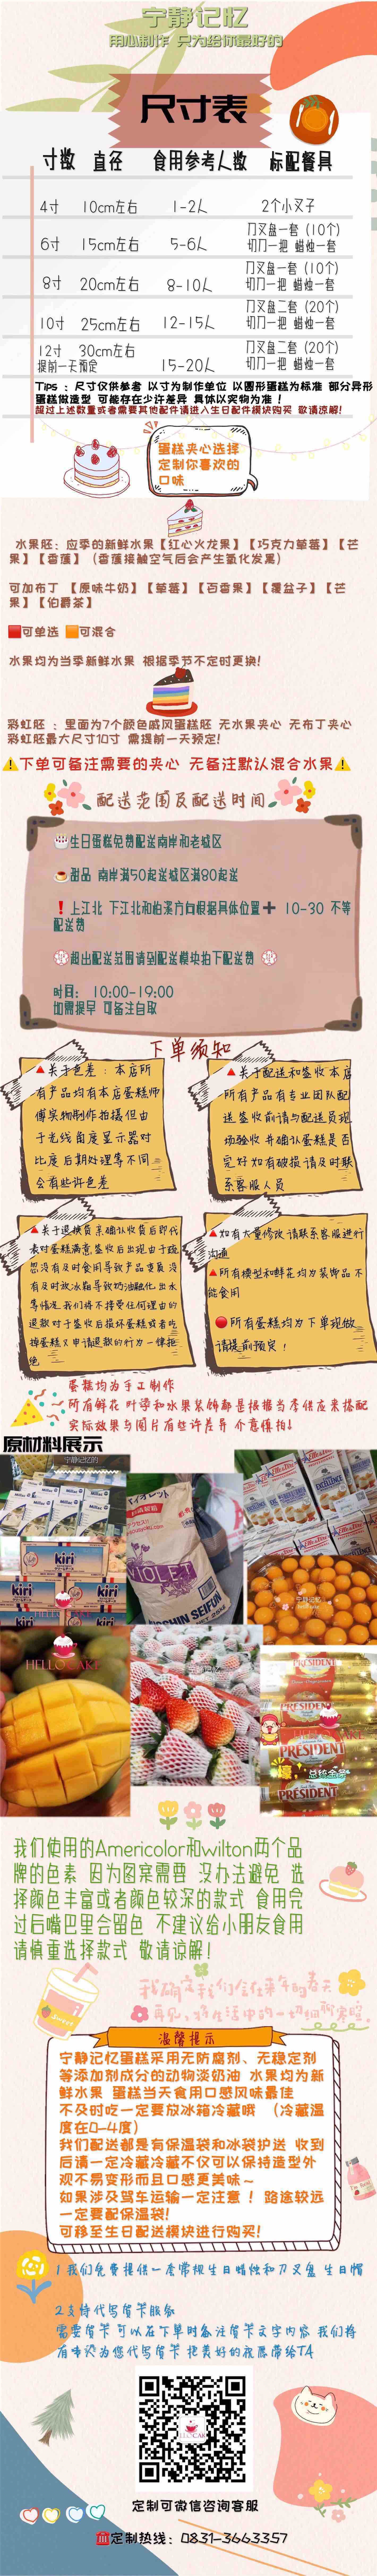 宁静记忆
用心制作 只为给你最好的
尺寸表
寸数 直径 食用参考人数 标配餐具
4寸 10cm左右 1-2人 2个小叉子
6寸 15cm左右 5-6人 刀叉盘一套（10个）
切刀一把 蜡烛一套
8寸 20cm左右 8-10人 刀叉盘一套（10个）
切刀一把 蜡烛一套
10寸 25cm左右 12-15人 刀叉盘二套（20个）
切刀一把 蜡烛一套
12寸 30cm左右
提前一天预定 15-20人 刀叉盘二套（20个）
切刀一把 蜡烛一套
Tips ：尺寸仅供参考 以寸为制作单位 以圆形蛋糕为标准 部分异形
蛋糕做造型 可能存在少许差异 具体以实物为准！
超过上述数量或者需要其他配件请进入生日配件模块购买 敬请谅解!
蛋糕夹心选择
定制你喜欢的
口味
水果胚：应季的新鲜水果【红心火龙果】【巧克力草莓】【芒
果】【香蕉】（香蕉接触空气后会产生氧化发黑）
可加布丁 【原味牛奶】【草莓】【百香果】【覆盆子】【芒
果】【伯爵茶】
可单选 可混合
水果均为当季新鲜水果 根据季节不定时更换!
彩虹胚 ：里面为7个颜色戚风蛋糕胚 无水果夹心 无布丁夹心
彩虹胚最大尺寸10寸 需提前一天预定!
下单可备注需要的夹心 无备注默认混合水果
配送范围及配送时间
生日蛋糕免费配送南岸和老城区
甜品 南岸满50起送城区满80起送
上江北 下江北和柏溪方向根据具体位置➕ 10-30 不等
配送费
超出配送范围请到配送模块拍下配送费
时间： 10:00-19:00
如需提早 可备注自取
下单须知
关于色差：本店所
有产品均有本店蛋糕师
傅实物制作拍摄但由
于光线角度显示器对
比度后期处理等不同
会有些许色差
关于配送和签收本店
所有产品有专业团队配
送签收前请与配送员现
场验收并确认蛋糕是否
完好如有破损请及时联
系客服人员
关于退换货亲确认收货后即代
表对蛋糕满意签收后出现由于疏
忽没有及时食用导致产品变质没
有及时放冰箱导致奶油融化出水
等情况我们将不接受任何理由的
退款对于签收后损坏蛋糕或者吃
掉蛋糕又申请退款的行为一律拒
绝
如有大量修改请联系客服进行
沟通
所有模型和鲜花均为装饰品不
能食用
所有蛋糕均为下单现做
请提前预定！
蛋糕均为手工制作
所有鲜花 叶子和水果装饰都是根据当季供应来搭配
实际效果与图片有些许差异 介意慎拍!
原材料展示
宁静记忆的
kiri
kiri
HELLO CAKE
VIOLET
NISSHIN SEIFUN
宁静记忆
HELLO CAKE
PRESIDENT
PRESIDENT
PRÉSIDENT
壕,
总统金砖
PRÉSIDENT
我们使用的Americolor和wilton两个品
牌的色素 因为图案需要 没办法避免 选
择颜色丰富或者颜色较深的款式 食用完
过后嘴巴里会留色 不建议给小朋友食用
请慎重选择款式 敬请谅解!
Sweet
温馨提示
宁静记忆蛋糕采用无防腐剂、无稳定剂
等添加剂成分的动物淡奶油 水果均为新
鲜水果 蛋糕当天食用口感风味最佳
不及时吃一定要放冰箱冷藏哦 （冷藏温
度在0-4度）
我们配送都是有保温袋和冰袋护送 收到
后请一定冷藏冷藏不仅可以保持造型外
观不易变形而且口感更美味~
如果涉及驾车运输一定注意！路途较远
一定要配保温袋!
可移至生日配送模块进行购买!
1 我们免费提供一套常规生日蜡烛和刀叉盘 生日帽
2 支持代写贺卡服务
需要贺卡 可以在下单时备注贺卡文字内容 我们将
定制可微信咨询客服
定制热线：0831-3663357